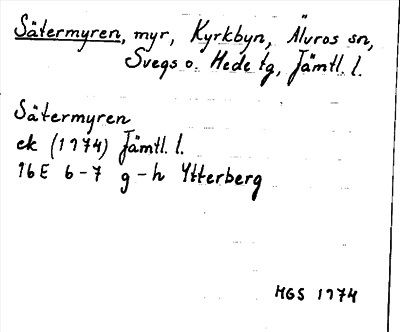 Sätermyren, myr, Kyrkbyn, Älvros sn,
Svegs o. Hede tg, Jämtl. l.
Sätermyren
ek (1974) Jämtl. l.
16E 6-7 g-h Ytterberg
MGS 1974